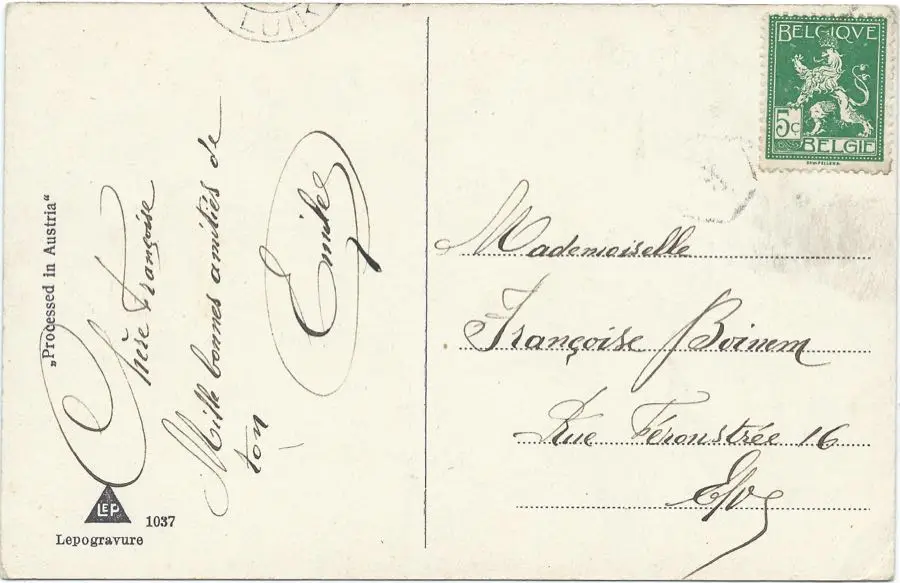 LUIK
„Processed in Austria“
Chère Françoise
Mille bonnes amitiés de
ton
Emile
LEP
1037
Lepogravure
BELGIQUE
5c
BELGIË
Mademoiselle
Françoise
Rue Féronstrée 16
E/V